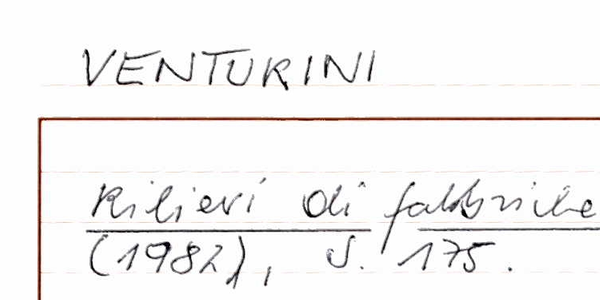 VENTURINI
Rilievi di fabbriche
(1982), S. 175.